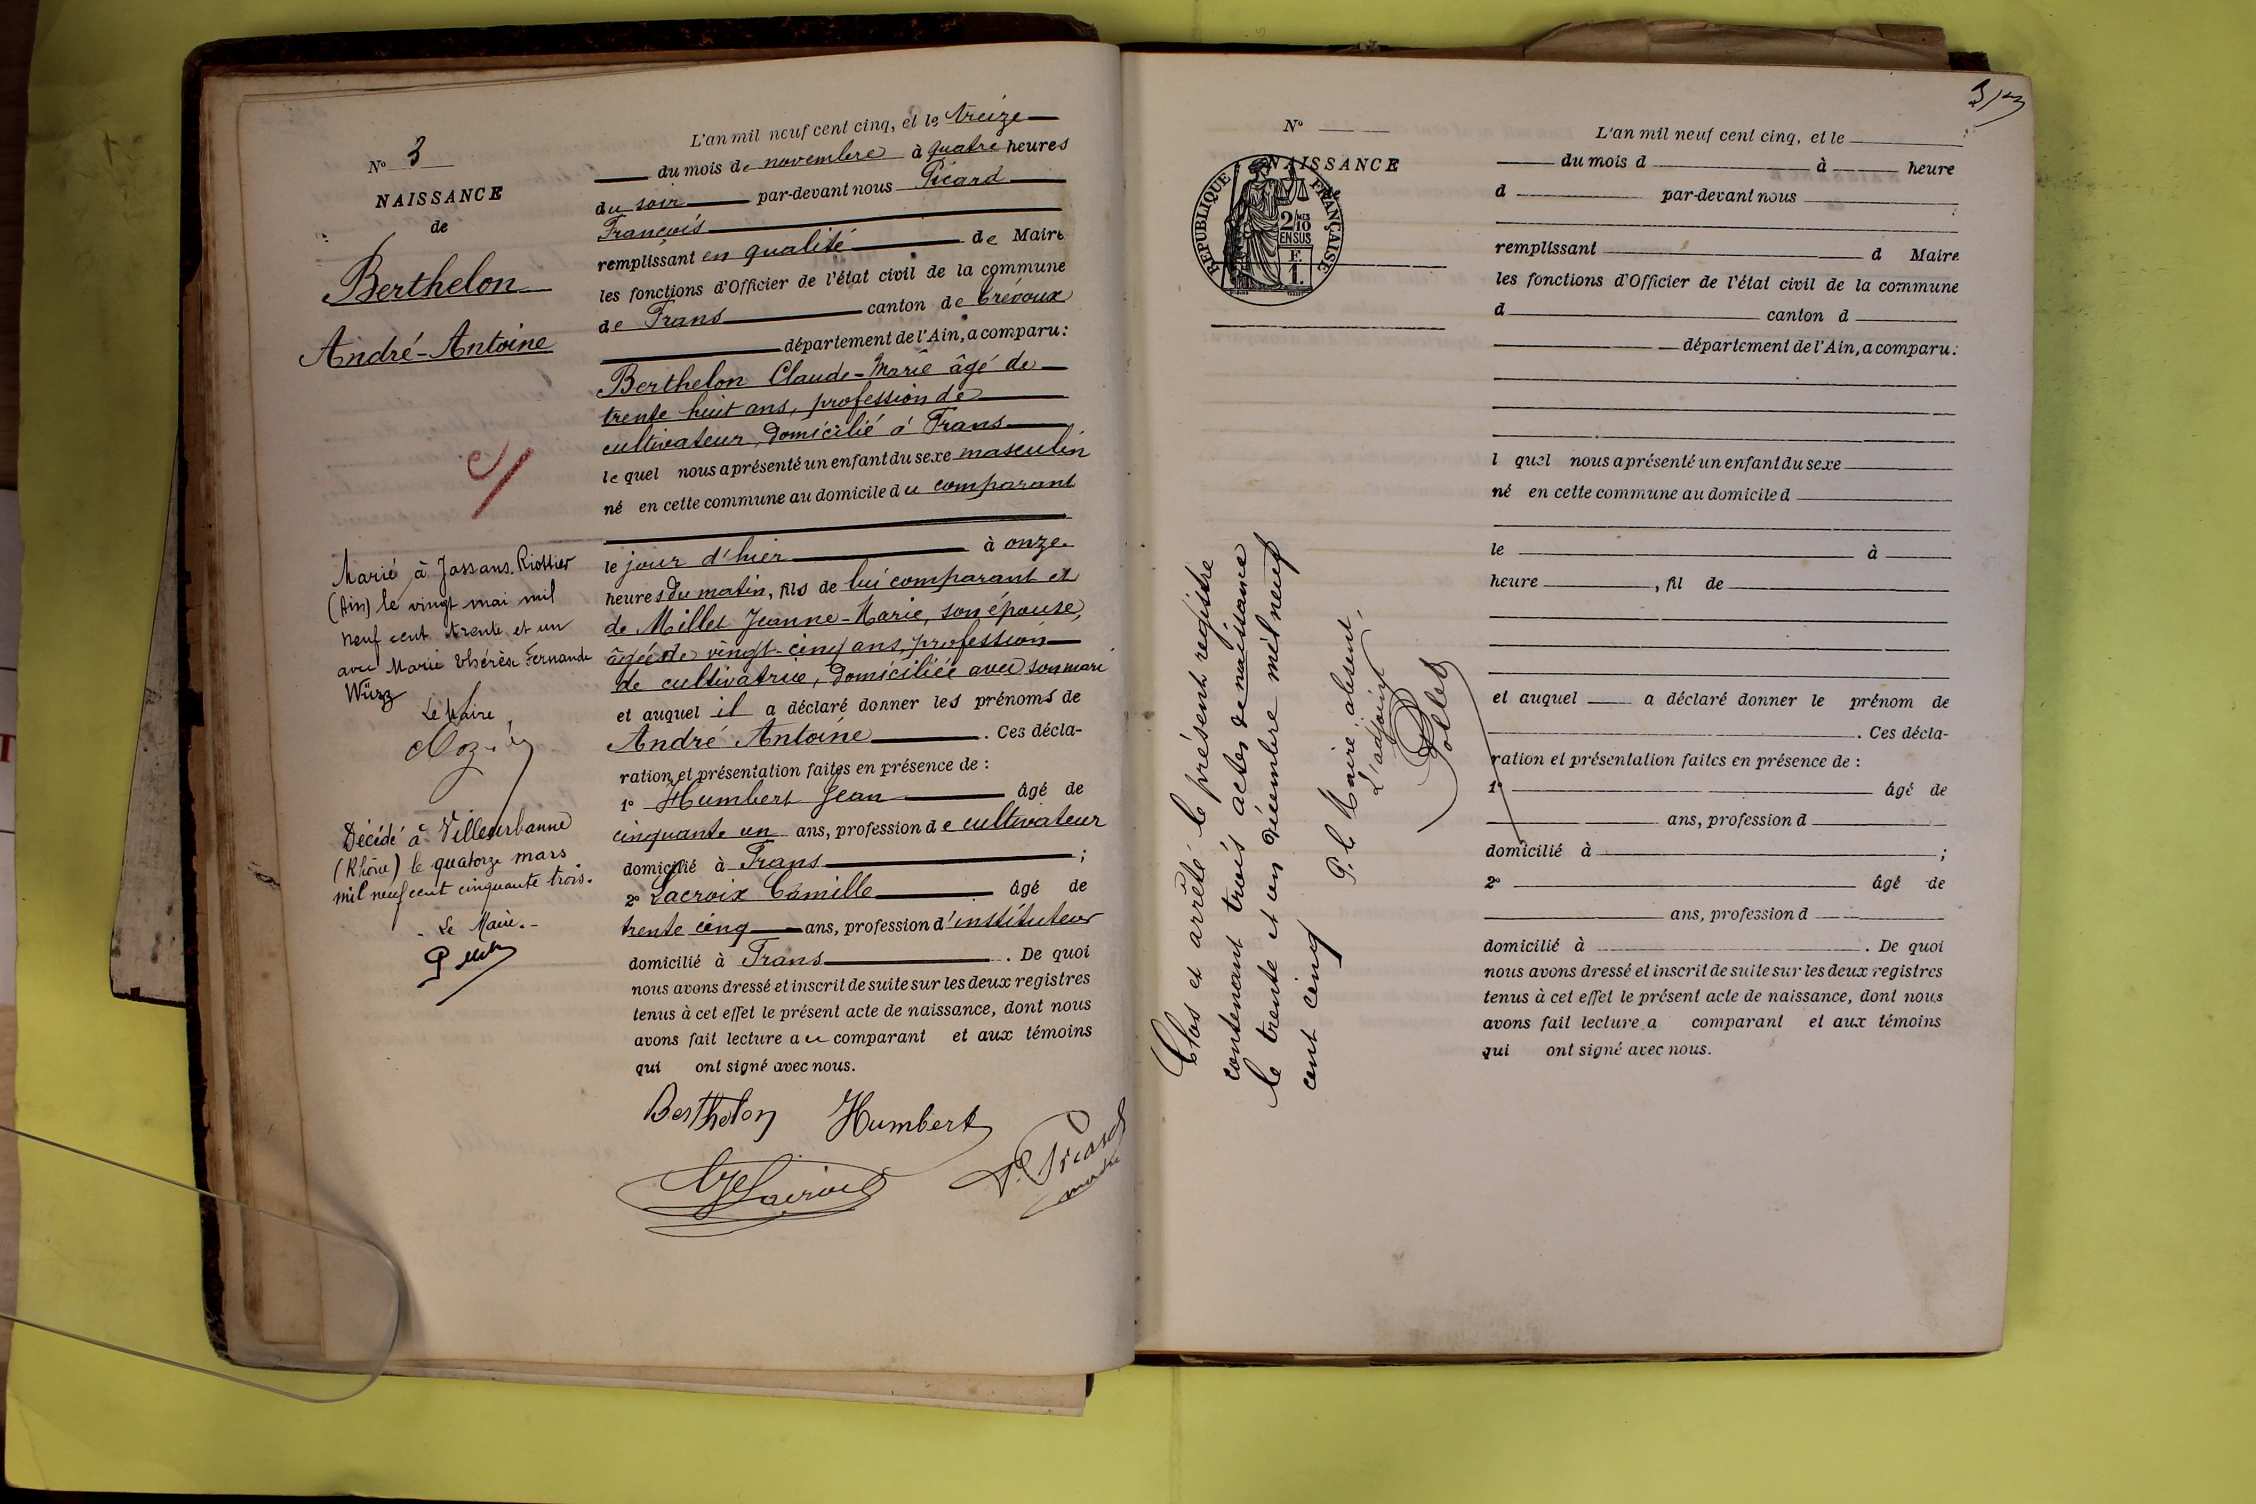 N° 3
NAISSANCE
de
Berthelon
André-Antoine
Marié à Jassans-Riottier
(Ain) le vingt mai mil
neuf cent trente et un
avec Marie Thérèse Fernande
Würz
Le Maire,
Décédé à Villeurbanne
(Rhône) le quatorze mars
mil neuf cent cinquante trois.
- Le Maire. -
L'an mil neuf cent cinq, et le treize
du mois de novembre à quatre heures
du soir par-devant nous Picard
François
remplissant en qualité de Maire
les fonctions d'Officier de l'état civil de la commune
de Frans canton de Trévoux
département de l'Ain, a comparu:
Berthelon Claude-Marie âgé de
trente huit ans, profession de
cultivateur, domicilié à Frans
lequel nous a présenté un enfant du sexe masculin
né en cette commune au domicile du comparant
le jour d'hier à onze
heures du matin, fils de lui comparant et
de Millet Jeanne-Marie, son épouse,
âgée de vingt-cinq ans, profession
de cultivatrice, domiciliée avec son mari
et auquel il a déclaré donner les prénoms de
André Antoine. Ces décla-
ration et présentation faites en présence de :
1° Humbert Jean âgé de
cinquante un ans, profession de cultivateur
domicilié à Frans ;
2° Lacroix Camille âgé de
trente cinq ans, profession d'instituteur
domicilié à Frans. De quoi
nous avons dressé et inscrit de suite sur les deux registres
tenus à cet effet le présent acte de naissance, dont nous
avons fait lecture au comparant et aux témoins
qui ont signé avec nous.
Berthelon Humbert
Lacroix
Picard
3/3
N°
NAISSANCE
REPUBLIQUE FRANÇAISE
2/10 MES
EN SUS
F.
1.
Clos et arrêté le présent registre
contenant trois actes de naissance
le trente et un décembre mil neuf
cent cinq
P. le Maire absent,
L'adjoint
Pollet
L'an mil neuf cent cinq, et le
du mois d à heure
d par-devant nous
remplissant d Maire
les fonctions d'Officier de l'état civil de la commune
d canton d
département de l'Ain, a comparu:
l quel nous a présenté un enfant du sexe
né en cette commune au domicile d
le à
heure , fil de
et auquel a déclaré donner le prénom de
. Ces décla-
ration et présentation faites en présence de :
1° âgé de
ans, profession d
domicilié à ;
2° âgé de
ans, profession d
domicilié à . De quoi
nous avons dressé et inscrit de suite sur les deux registres
tenus à cet effet le présent acte de naissance, dont nous
avons fait lecture a comparant et aux témoins
qui ont signé avec nous.